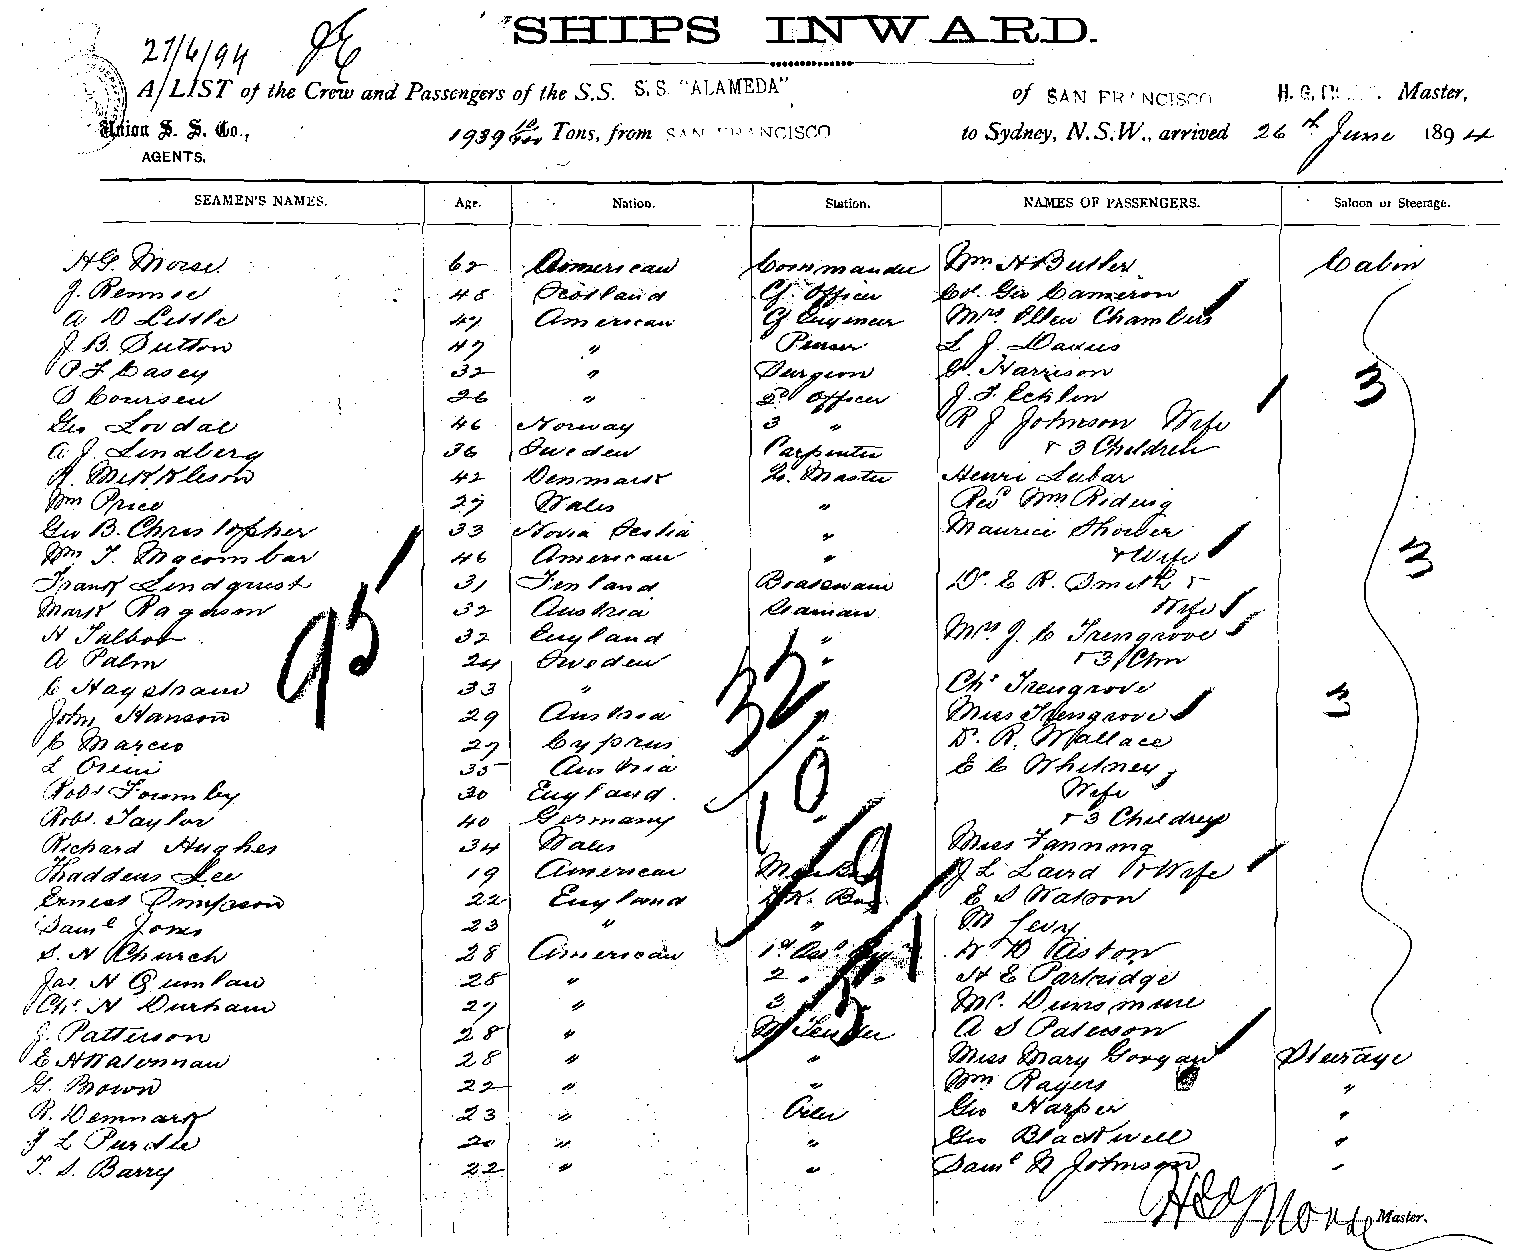 SHIPS INWARD.
27/6/94
A/LIST of the Crew and Passengers of the S.S. S.S. "ALAMEDA" of SAN FRANCISCO H. G. Master,
Union S. S. Co., 1939 Tons, from SAN FRANCISCO to Sydney, N.S.W., arrived 26th June 1894
AGENTS.
SEAMEN'S NAMES. Age. Nation. Station. NAMES OF PASSENGERS. Saloon or Steerage.
HG. Morse 62 American Commander Wm H Butler Cabin
J. Rennie 48 Scotland Cf. Officer Geo Cameron
A D Little 47 American Cf Engineer Mrs Ellen Chambers
J. B. Sutton 47 " Purser L J. Davies
P F Casey 32 " Surgeon G. Harrison
Coursen 26 " 2d Officer J. F. Echlin 3
Geo Lovdal 46 Norway 3 " R J Johnson Wife
A J. Lindberg 36 Sweden Carpenter & 3 Children
Mikkleson 42 Denmark Qr. Master Henri Lubar
Wm Price 27 Wales " Revd Wm Riding
Geo B. Christopher 33 Nova Scotia " Maurice Shower
Wm T. Macombar 46 American " & Wife 3
Frank Lindquist 31 Finland Boatswain Dr. E R. Smith &
Mark Ragusson 32 Austria Seaman Wife
H Talbot 32 England " Mrs J. C Trengrove
A Palm 24 Sweden " & 3 Chn
C Hagstram 33 " Chs Trengrove
John Hanson 29 Austria Miss Trengrove 3
C Marcio 27 Cyprus " Dr. R. Wallace
L 35 Austria E C Whitney,
Robt Formby 30 England. Wife
Robt. Taylor 40 Germany & 3 Children
Richard Hughes 34 Wales Miss Fanning
Thaddeus Lee 19 American J L Laird & Wife
Ernest Simpson 22 England E S Watson
Saml Jones 23 " " M Levy
S. H Church 28 American 1st Ast W D Aston
Jas. H Quinlan 28 " 2 " H E Partridge
Chs. H Durham 27 " 3 Mr. Dunsmure
J. Patterson 28 " W Tender A S Paterson
E H Waterman 28 " " Miss Mary Gorgan Steerage
G. Brown 22 " " Wm Rayers "
R. Denmark 23 " Oiler Geo Harper "
L Purdie 20 " " Geo Blackwell "
T. S. Barry 22 " " Saml N Johnson "
95
32
10
9
1
3
HG Morse Master.